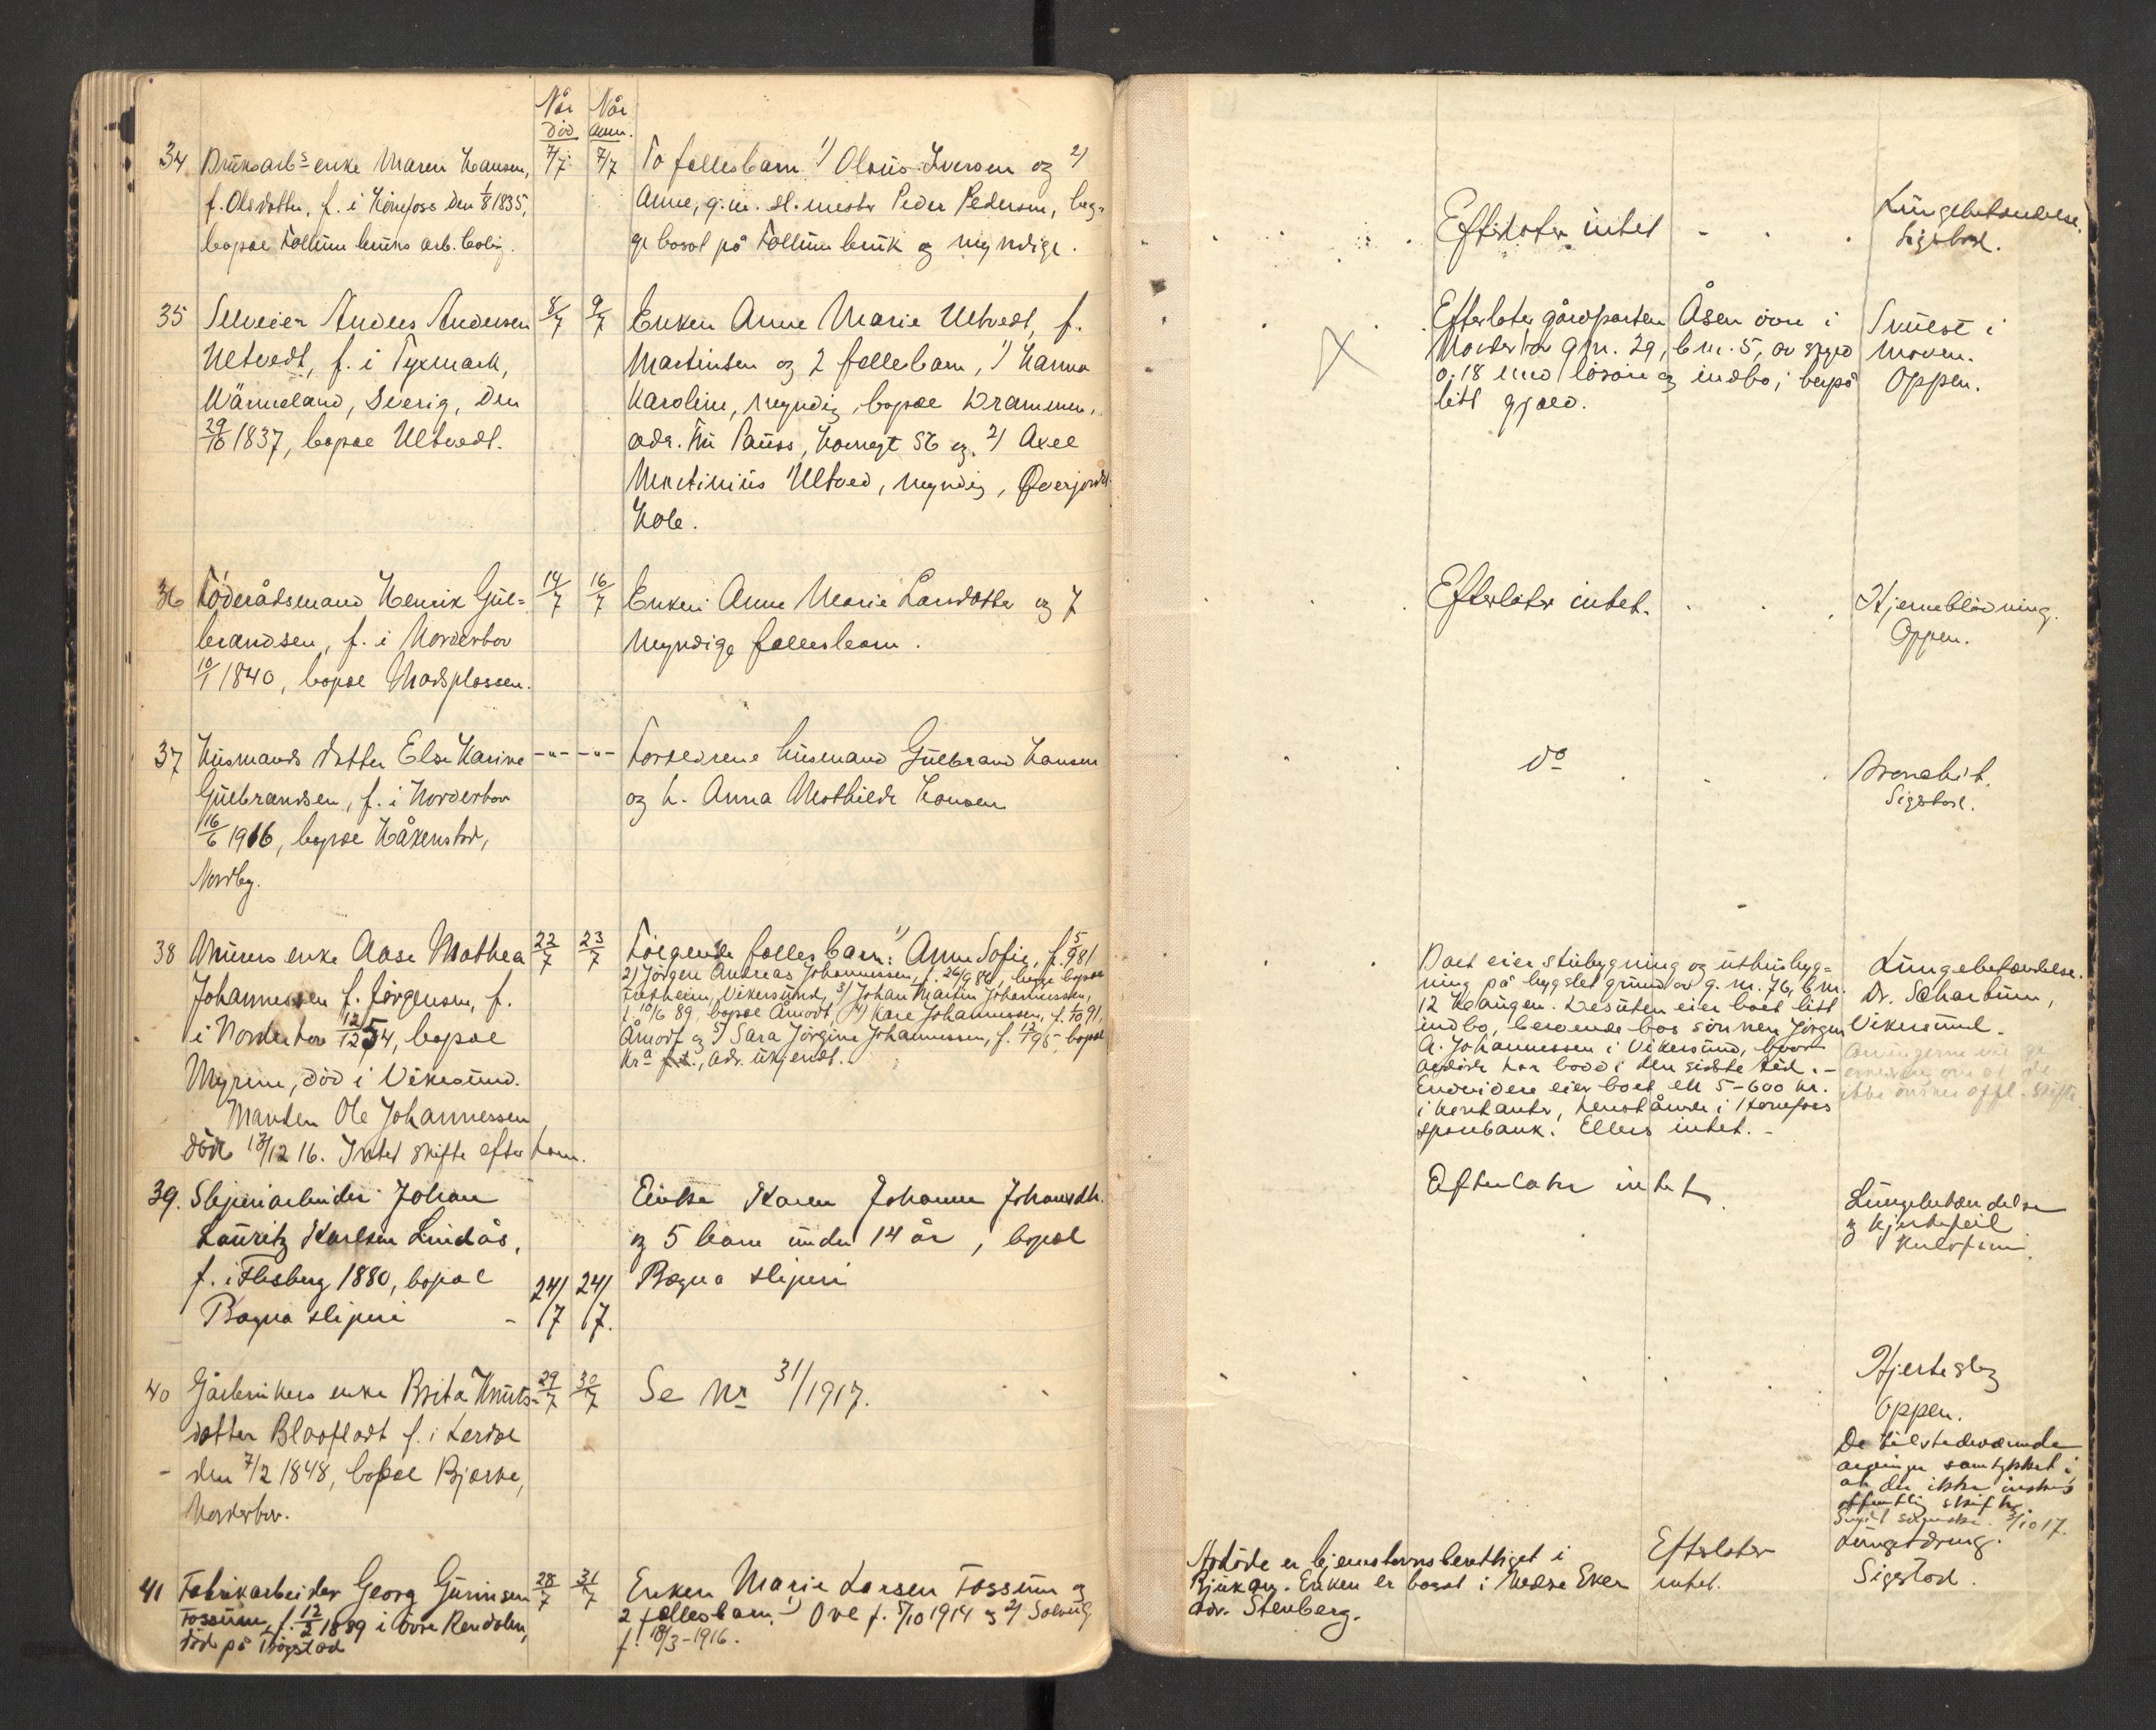 Når Når
død anm.
34 Bruksarb.s enke Maren Hansen, 7/7 7/7 To fellesbarn 1) Olaus Iversen og 2)
f. Olsdatter, f. i Hönefoss den 1/8 1835, Anne, g.m. sl.mester Peder Pedersen, beg-
bopæl Follum bruks arb.bolig. ge bosat på Follum bruk og myndige.
Efterlater intet
Lungebetændelse.
Sigstad.
35 Selveier Anders Andersen 8/7 9/7 Enken Anne Marie Ultvedt, f.
Ultvedt, f. i Fryxmark, Martinsen og 2 fellesbarn, 1) Hanna
Wärmeland, Sverig, den Karoline, myndig, bopæl Drammen,
29/10 1837, bopæl Ultvedt. adr. Fru Pauss, 56 og 2) Axel
Martinius Ultved, myndig,
Hole.
Efterlater gårdparten Åsen övre i
Norderhov g.nr. 29, b.nr. 5, av skyld
0.18 med lösöre og indbo; herpå
litt gjæld.
Svulst i
maven.
Oppen.
36 Föderådsmand Henrik Gul- 14/7 16/7 Enken Anne Marie Larsdatter og 7
brandsen, f. i Norderhov myndige fellesbarn.
10/1 1840, bopæl Madsplassen.
Efterlater intet.
Hjerneblödning.
Oppen.
37 Husmands datter Else Karine -"- -"- Foreldrene husmand Gulbrand Hansen
Gulbrandsen, f. i Norderhov og h. Anna Mathilde Hansen
16/6 1916, bopæl Håkenstad,
Nordby.
do
Bronchit.
Sigstad.
38 Murers enke Aase Mathea 22/7 23/7 Fölgende fellesbarn: 1) Anne Sofie, f. 5/9 81
Johannessen f. Jörgensen, f. 2) Jörgen Andreas Johannessen, f. 26/9 86, begge bopæl
i Norderhov 12/12 54, bopæl Vikersund, 3) Johan Martin Johannessen,
Myren, död i Vikersund. f. 10/6 89, bopæl Åmodt, 4) Kare Johannessen, f. 1/10 91,
Manden Ole Johannessen Åmodt og 5) Sara Jörgine Johannessen, f. 12/1 95, bopæl
döde 13/12 16. Intet skifte efter ham. Kr.a, adr. ukjendt.
Boet eier stubygning og uthusbyg-
ning på bygslet grund av g.nr. 76, b.nr.
12 Haugen. Desuten eier boet litt
indbo, beroende hos sönnen Jörgen
A. Johannessen i Vikersund, hvor
avdöde har bodd i den sidste tid. -
Endvidere eier boet ell. 5-600 kr.
i kontanter, henstående i Hönefoss
sparebank. Ellers intet. -
Lungebetændelse.
Dr. Scharbum,
Vikersund.
Arvingerne
om at de
ikke önsker offl. skifte
39. Sliperiarbeider Johan Enke Karen Johanne Johansdtr.
Lauritz Karlsen Lindås, og 5 barn under 14 år, bopæl
f. i Flesberg 1880, bopæl 24/7 24/7. Bægna sliperi
Bægna sliperi
Efterlater intet
Lungebetændelse
og hjertefeil
40 Gårdbrukers enke Brita Knuts- 29/7 30/7 Se Nr 31/1917.
datter Blaafladt f. i Lerdal
den 7/2 1848, bopæl Bjerke,
Norderhov.
Hjerteslag
Oppen.
De tilstedeværende
arvinger samtykket i
at der ikke önskes
offentlig skifte.
3/10 17.
41 Fabrikarbeider Georg Gurinsen 28/7 31/7 Enken Marie Larsen Fossum og
Fossum, f. 12/2 1889 i övre Rendalen, 2 fellesbarn: 1) Ove f. 5/10 1914 og 2) Solveig
död på Ringstad f. 18/3-1916.
Avdöde er hjemstavnsberettiget i
Rjukan. Enken er bosat i Nedre Eker
adr. Stenberg.
Efterlater
intet.
Lungetæring.
Sigstad.